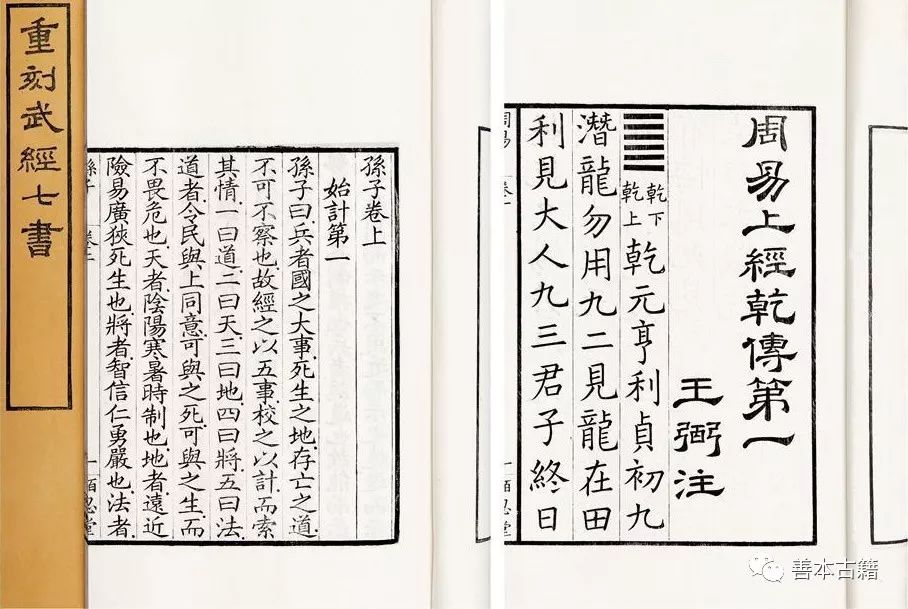 重刻武經七書
孫子卷上
始計第一
孫子曰兵者國之大事死生之地存亡之道
不可不察也故經之以五事校之以計而索
其情一曰道二曰天三曰地四曰將五曰法
道者令民與上同意可與之死可與之生而
不畏危也天者陰陽寒暑時制也地者遠近
險易廣狹死生也將者智信仁勇嚴也法者
周易上經乾傳第一
王弼注
乾下
乾上
乾元亨利貞初九
潛龍勿用九二見龍在田
利見大人九三君子終日
善本古籍